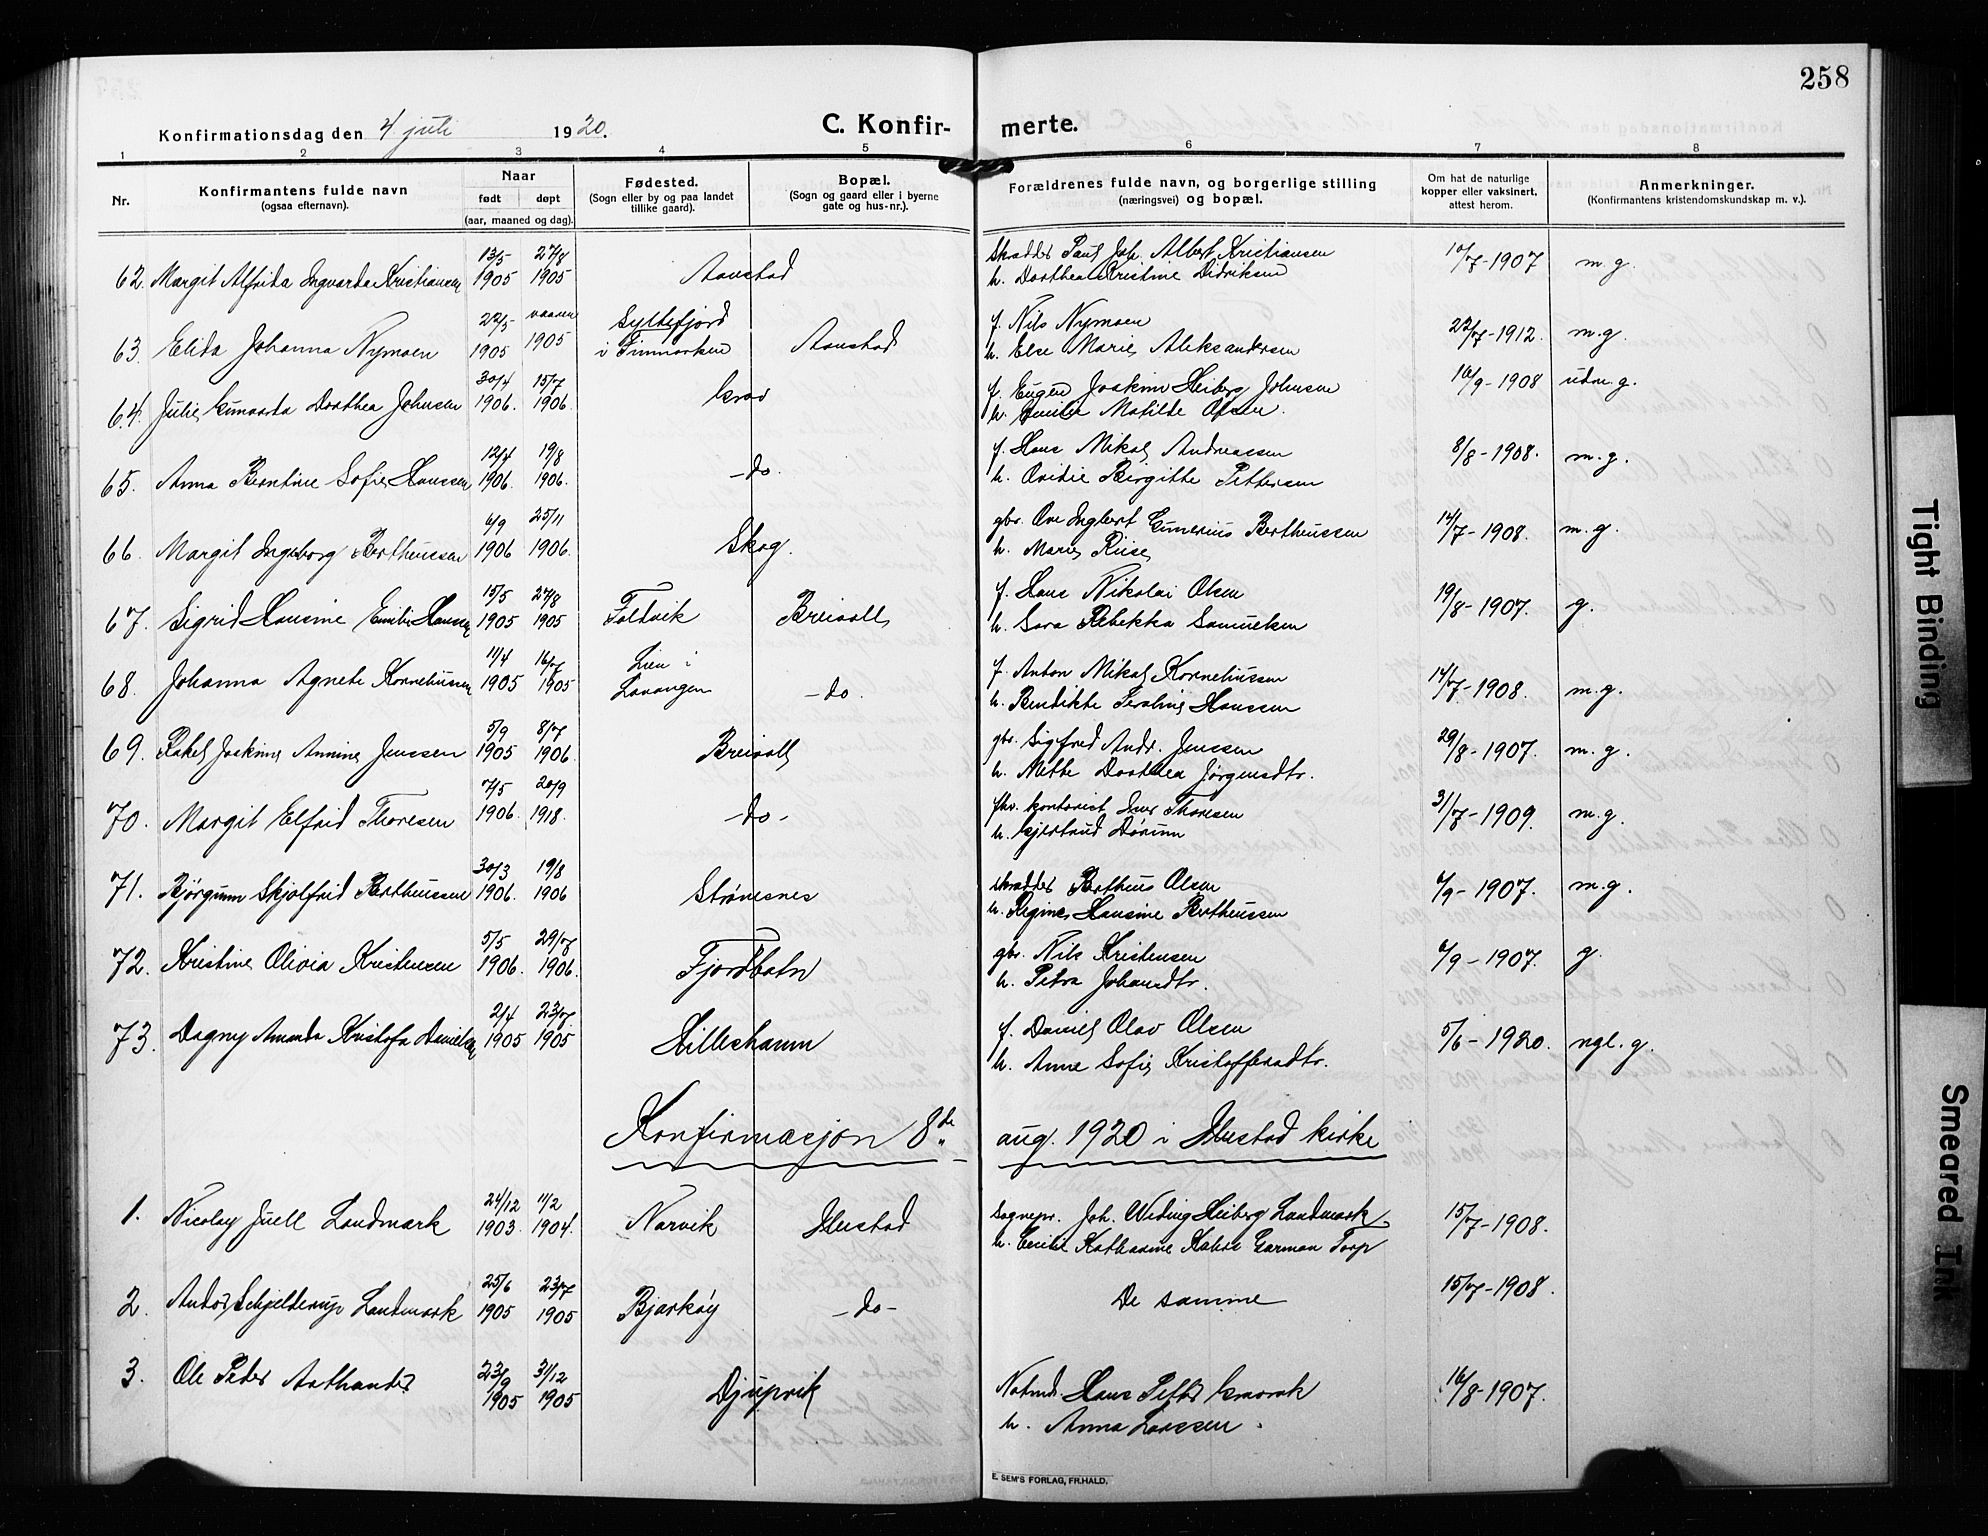 258
Konfirmationsdag den 4 juli 1920. C. Konfirmerte.
1 2 3 4 5 6 7 8
Nr.
Konfirmantens fulde navn
(ogsaa efternavn).
Naar
født døpt
(aar, maaned og dag).
Fødested.
(Sogn eller by og paa landet
tillike gaard).
Bopæl.
(Sogn og gaard eller i byerne
gate og hus-nr.).
Forældrenes fulde navn, og borgerlige stilling
(næringsvei) og bopæl.
Om hat de naturlige
kopper eller vaksinert,
attest herom.
Anmerkninger.
(Konfirmantens kristendomskundskap m. v.).
13/5 27/8 Skrædder Paul Joh. Albert Kristiansen
62. Margit Alfrida Ingvarda Kristiansen 1905 1905 Aanstad h. Dorthea Kristine Didriksen 10/7-1907 m.g.
22/5 vaaren Syltefjord f. Nils Nymoen
63. Elida Johanna Nymoen 1905 1905 i Finmarken Aanstad h. Else Marie Aleksandersen 22/7-1912. m.g.
30/4 15/7 f. Eugen Joakim Heiberg Johnsen
64. Julie Dorthea Johnsen 1906. 1906. h. Emilie Matilde Olsen. 16/9-1908 udm.g.
12/4 19/8 f. Hans Mikal Andreassen
65. Anna Berntine Sofie Hanssen 1906. 1906. -do. h. Ovidie Birgitte Pettersen 8/8-1908. m.g.
6/9 25/11 gbr. Ove Ingbert Cumerius Bertheussen
66. Margit Ingeborg Bertheussen 1906 1906. Skog. h. Marie Riise 14/7-1908. m.g.
15/5 27/8 f. Hans Nikolai Olsen
67. Sigrid Hansine Emilie Hansen 1905 1905 Foldvik Breivoll h. Sara Rebekka Samuelsen 19/8-1907. g.
11/4 16/7 Lien i f. Anton Mikal Korneliussen
68. Johanna Agnete Korneliussen 1905 1905 Lavangen -do. h. Bendikte Hanssen 14/7-1908. m.g.
5/9 8/7 gbr. Sigfred Andr. Jenssen
69. Rakel Joakime Annine Jenssen 1905 1906. Breivoll h. Mette Dorthea Jørgensdtr. 29/8-1907. m.g.
7/5 20/9 fhv. kontorist Iver Thoresen
70. Margit Elfrid Thoresen 1906. 1918. -do- h. Gjertrud Dørum 31/7-1909. m.g.
30/3 19/8 skrædder Bertheus Olsen
71. Bjørgunn Skjolfrid Bertheussen 1906. 1906 Strømesnes h. Regine Hansine Bertheussen 6/9-1907. m.g.
5/5 29/7 gbr. Nils Kristensen
72. Kristine Olivia Kristensen 1906. 1906. Fjordbotn h. Petra Johansdtr. 6/9-1907. g.
2/4 23/7 f. Daniel Olav Olsen
73. Dagny Amanda Kristofa Danielsen 1905 1905 Hilleshamn h. Anne Sofie Kristoffersdtr. 5/6-1920. ngl.g.
Konfirmasjon 8de aug. 1920 i Ibestad kirke
24/12 11/2 Sognepr. Joh. Widing Heiberg Landmark
1. Nicolay Juell Landmark 1903. 1904. Narvik Ibestad h. Cecilie Katharine Garman Torp 15/7-1908.
25/6 23/7
2. Andor Schjelderup Landmark 1905 1905 Bjarkøy -do- De samme 15/7-1908.
23/9 31/12 Hans Petter
3. Ole Peder 1905 1905 Djupvik h. Anna Larssen. 16/8-1907.
E. SEM'S FORLAG, FR.HALD.
Tight Binding
Smeared Ink